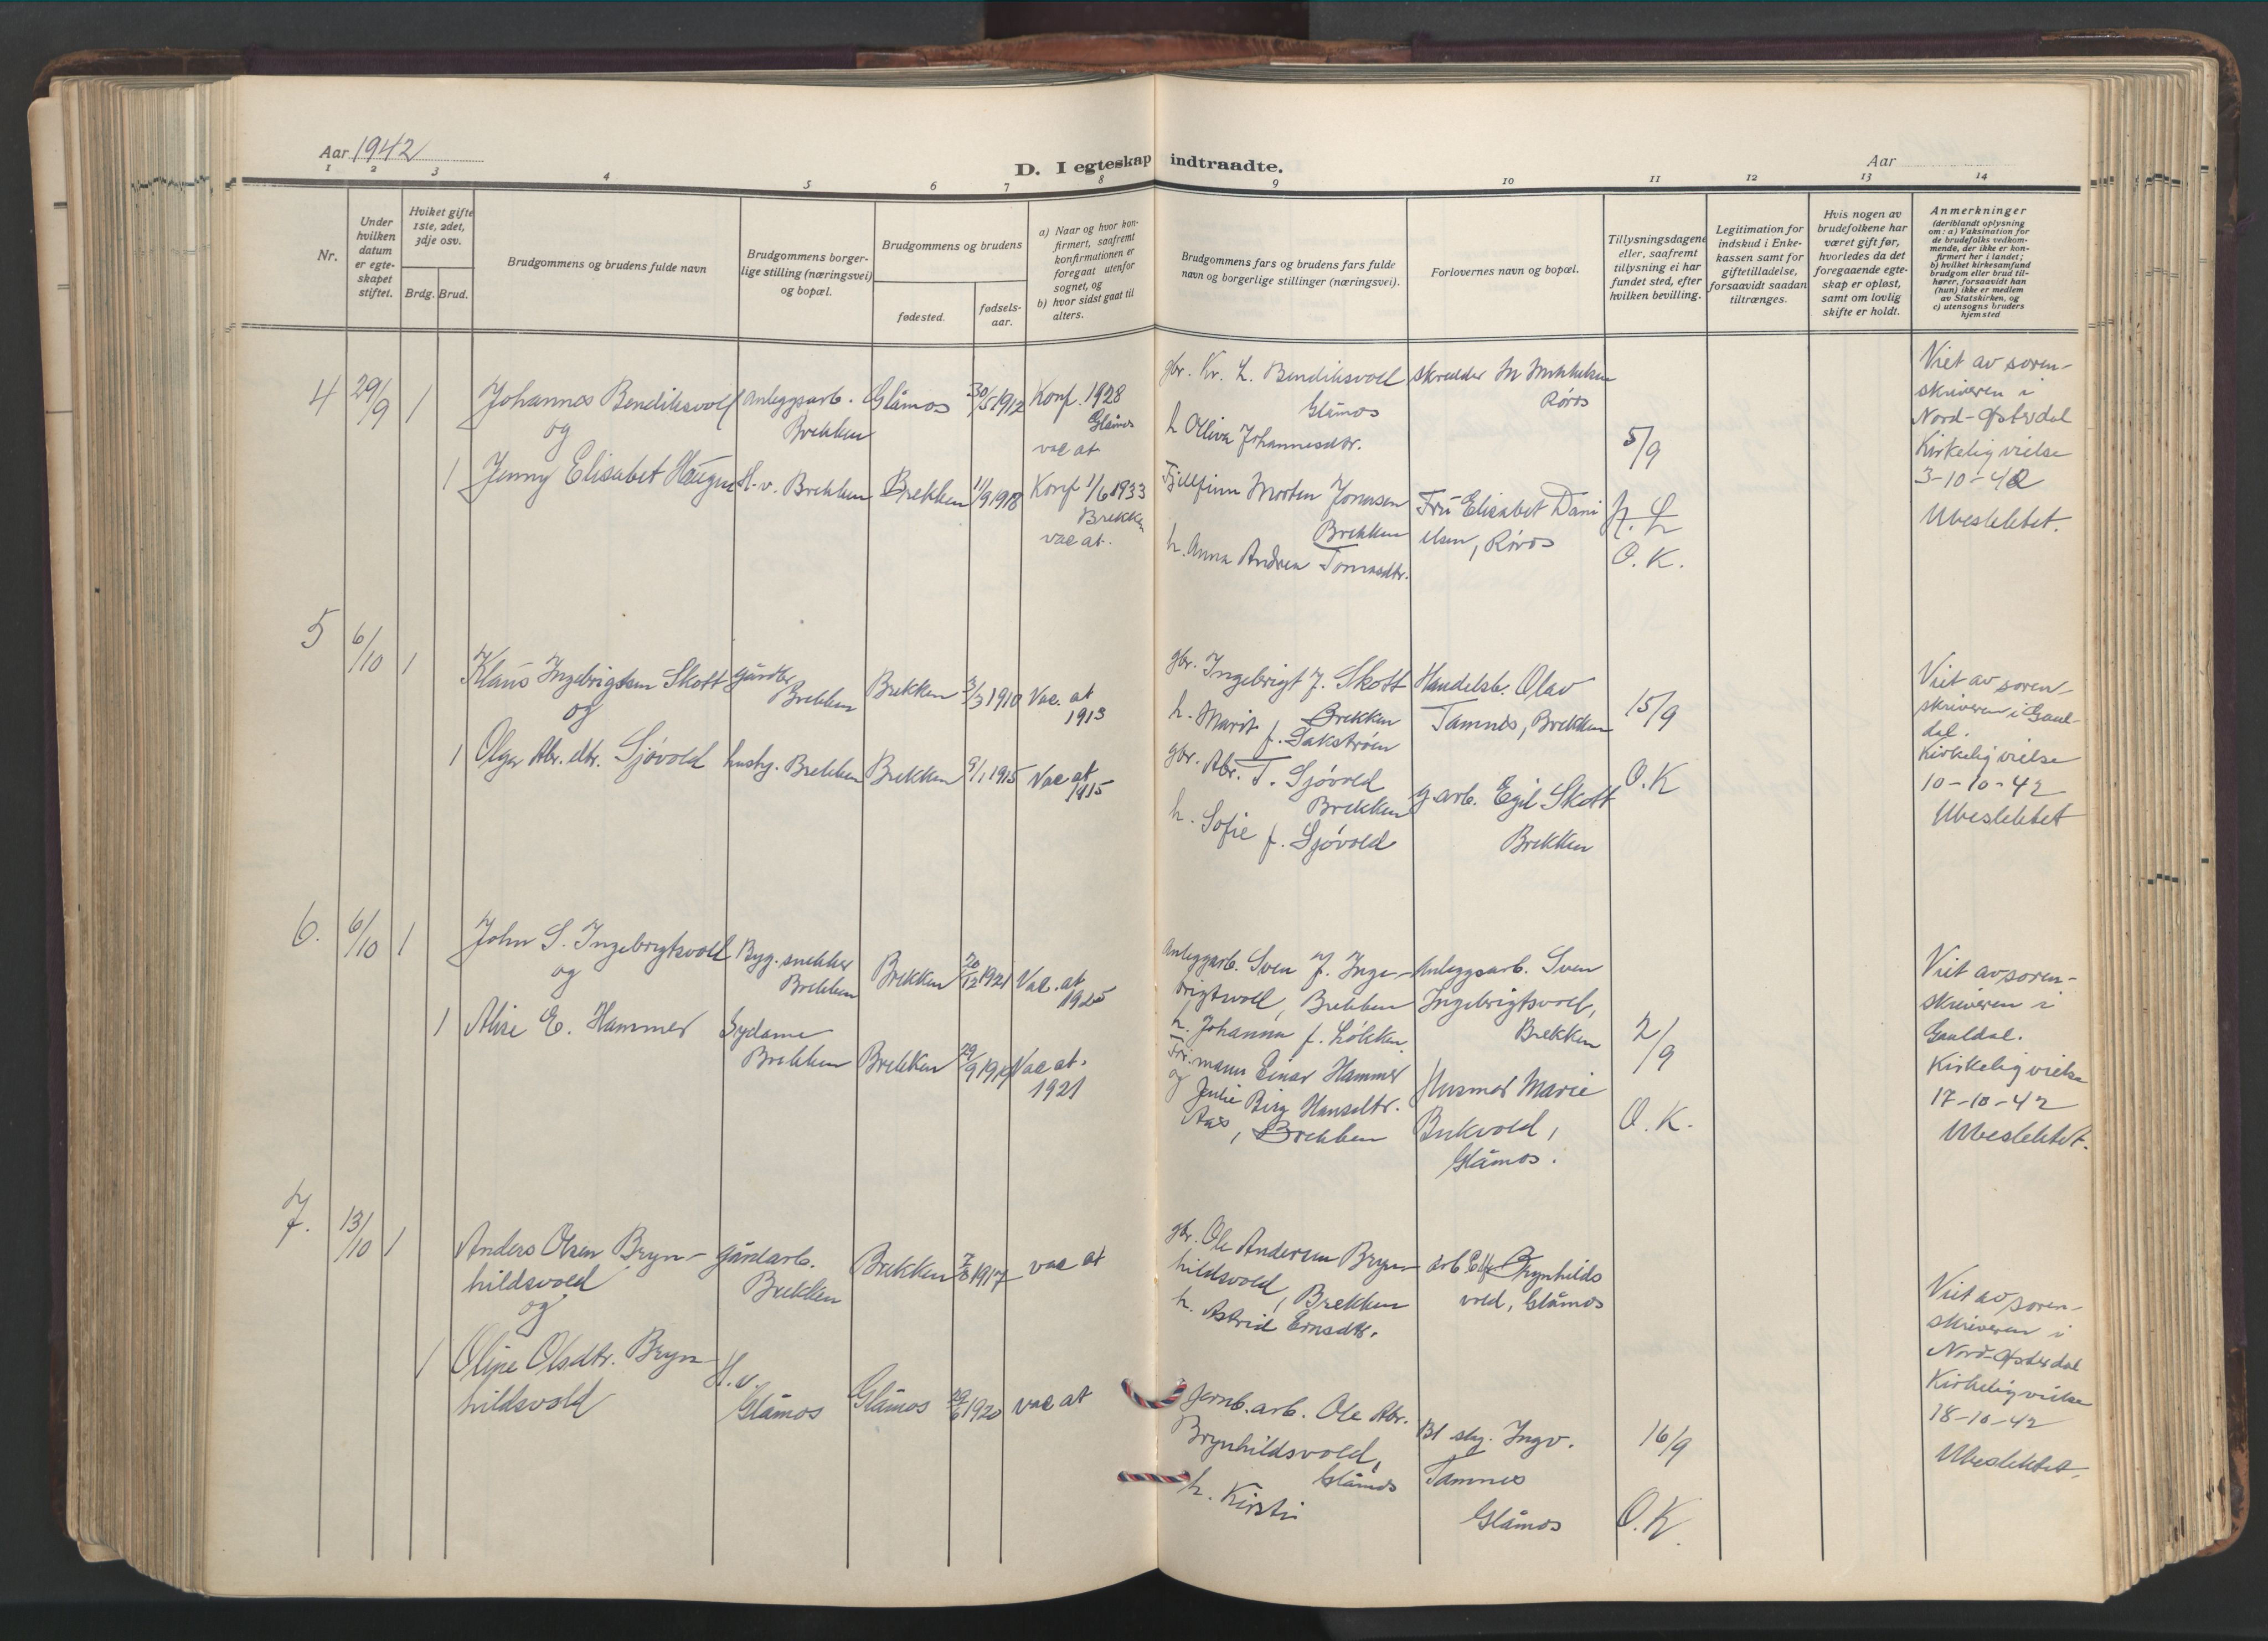 Aar 1942
D. I egteskap indtraadte.
Aar
1 2 3 4 5 6 7 8 9 10 11 12 13 14
Nr.
Under
hvilken
datum
er egte-
skapet
stiftet.
Hviket gifte
1ste, 2det,
3dje osv.
Brdg. Brud.
Brudgommens og brudens fulde navn
Brudgommens borger-
lige stilling (næringsvei)
og bopæl.
Brudgommens og brudens
fødested.
fødsels-
aar.
a) Naar og hvor kon-
firmert, saafremt
konfirmationen er
foregaat utenfor
sognet, og
b) hvor sidst gaat til
alters.
Brudgommens fars og brudens fars fulde
navn og borgerlige stillinger (næringsvei).
Forlovernes navn og bopæl.
Tillysningsdagene
eller, saafremt
tillysning ei har
fundet sted, efter
hvilken bevilling.
Legitimation for
indskud i Enke-
kassen samt for
giftetilladelse,
forsaavidt saadan
tiltrænges.
Hvis nogen av
brudefolkene har
været gift før,
hvorledes da det
foregaaende egte-
skap er opløst,
samt om lovlig
skifte er holdt.
Anmerkninger
(deriblandt oplysning
om: a) Vaksination for
de brudefolks vedkom-
mende, der ikke er kon-
firmert her i landet;
b) hvilket kirkesamfund
brudgom eller brud til-
hører, forsaavidt han
(hun) ikke er medlem
av Statskirken, og
c) utensogns bruders
hjemsted
4
29/9
1
Johannes Bendiksvoll
og
1 Jenny Elisabet Haugen
Anleggsarb.
Brekken
H.v. Brekken
Glåmos
Brekken
30/5 1912
11/9 1918
Konf. 1928
Glåmos
vac at
Konf 1/6 1933
Brekken
vac at.
gbr. Kr. L. Bendiksvoll
Glåmos
h Oliva Johannesdtr.
Fjellfinn Morten Jonassen
Brekken
h. Anna Andrea Tomasdtr.
skredder
Røros
Fru Elisabet Dani
elsen, Røros
5/9
O.K.
Viet av soren-
skriveren i
Nord-Østerdal
Kirkelig vielse
3-10-42
Ubeslektet.
5
6/10
1
Klaus Ingebrigtsen Skott
og
1 Olga Abr. dtr. Sjøvold
gårdbr
Brekken
husby. Brekken
Brekken
Brekken
3/3 1910
9/1 1915
Vac. at
1913
Vac at
1915
gbr. Ingebrigt J. Skott
Brekken
h. Marit f. Sakstrøen
gbr. Abr. T. Sjøvold
Brekken
h. Sofie f. Sjøvold
Handelsb. Olav
Tamnes, Brekken
g.arb. Egil Skott
Brekken
15/9
O.K
Viet av soren-
skriveren i Gaul-
dal.
Kirkelig vielse
10-10-42
Ubeslektet
6.
6/10
1
John S. Ingebrigtsvoll
og
1 Alise E. Hammer
Byg. snekker
Brekken
Sydame
Brekken
Brekken
Brekken
20/12 1921
Vac. at
1925
Vac at.
1921
Anleggarb. Sven J. Inge-
brigtsvoll, Brekken
h. Johanna f. Løkken.
mann Einar Hammer
og Julie Berg Hansdtr.
Aas, Brekken
Anleggsarb. Sven
Ingebrigtsvoll,
Brekken
Husmor Marie
Bukvold,
Glåmos.
2/9
O.K.
Viet av soren-
skriveren i
Gauldal.
Kirkelig vielse
17-10-42
Ubeslektet.
7.
13/10
1
Anders Olsen Bryn-
hildsvold
og
1 Oline Olsdtr. Bryn-
hildsvold
gårdarb.
Brekken
H.v.
Glåmos
Brekken
Glåmos
1917
1920
vac at
vac at
gbr. Ole Andersen Bryn-
hildsvold, Brekken
h. Astrid Ernsdtr.
Jernb.arb. Ole Abr.
Brynhildsvold,
Glåmos
h. Kirsti
arb. Brynhilds
vold, Glåmos
Ingv.
Tamnes
Glåmos
16/9
O.K.
Viet av soren-
skriveren i
Nord-Østerdal
Kirkelig vielse
18-10-42
Ubeslektet.